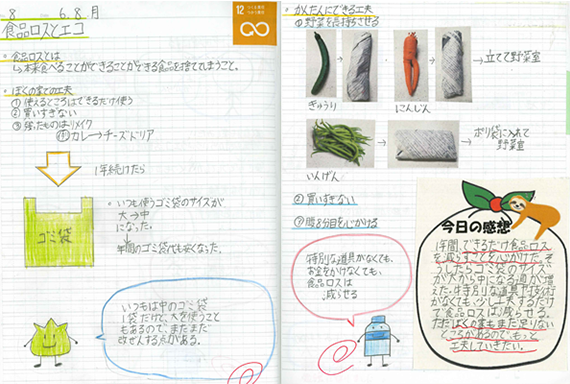 8 6.8.月
食品ロスとエコ
12 つくる責任
つかう責任
・食品ロスとは
↳本来食べることができることができる食品を捨ててしまうこと。
・ぼくの家での工夫
①使えるところはできるだけ使う
②買いすぎない
③残ったものはリメイク
カレー→チーズドリア
1年続けたら
ゴミ袋
・いつも使うゴミ袋のサイズが
大→中
になった。
年間のゴミ袋代も安くなった。
いつもは中のゴミ袋
1袋だけで、大を使うこと
もあるので、まだまだ
改ぜんする点がある。
・かんたんにできる工夫
①野菜を長持ちさせる
きゅうり
にんじん
→立てて野菜室
いんげん
→ポリ袋に入れて
野菜室
②買いすぎない
③腹8分目を心がける
特別な道具がなくても、
お金をかけなくても、
食品ロスは
減らせる
今日の感想
1年間、できるだけ食品ロス
を減らすことを心がけた。そ
うしたらゴミ袋のサイズ
が大から中になる月が増
えた。特別な道具やお金
がなくても、少し工夫するだけ
で食品ロスは減らせる。
ただ、ぼくの家もまだ足りない
ところがあるので、もっと
工夫していきたい。